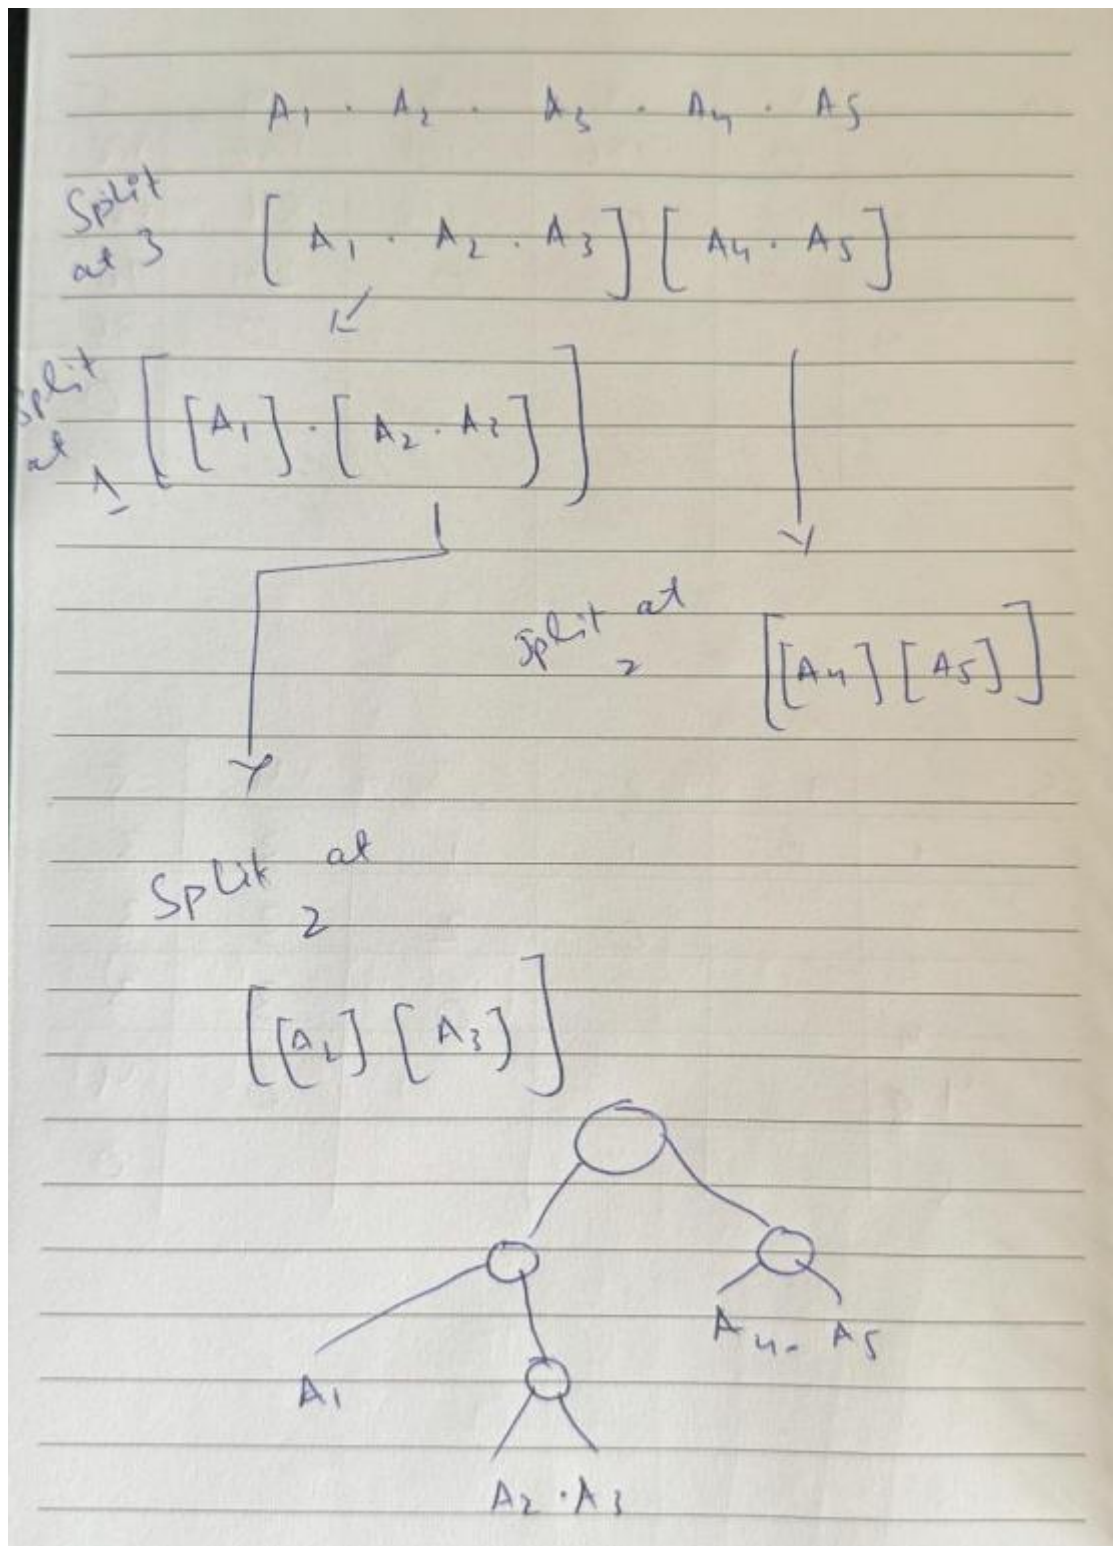 A1 . A2 . A3 . A4 . A5
Split
at 3
[A1 . A2 . A3] [A4 . A5]
Split
at
1
[[A1] . [A2 . A3]]
Split at
2
[[A4] [A5]]
Split at
2
[[A2] [A3]]
A4. A5
A1
A2 . A3